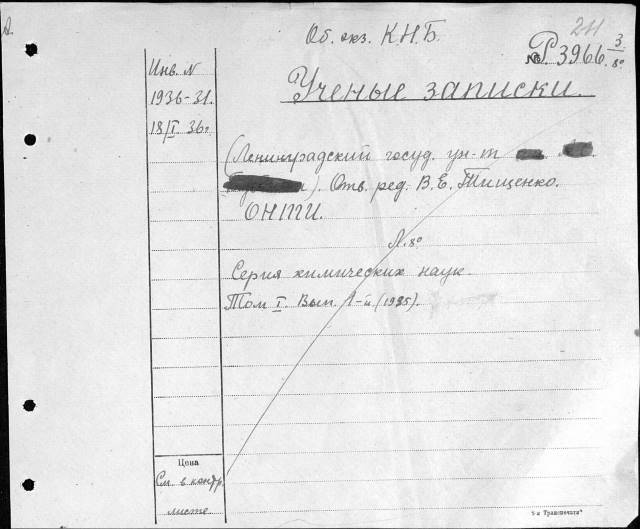 Об. экз. К.Н.Б.
211
№ Р 3966. 3/8°
Инв. N
1936-31.
18/I 36г.
Ученые записки.
(Ленинградский госуд. ун-т
). Отв. ред. В. Е. Тищенко.
ОНТИ.
Л. 8°
Серия химических наук.
Том I. Вып. 1-й (1935).
Цена
См. в контр.
листе.
"я Транспечати"